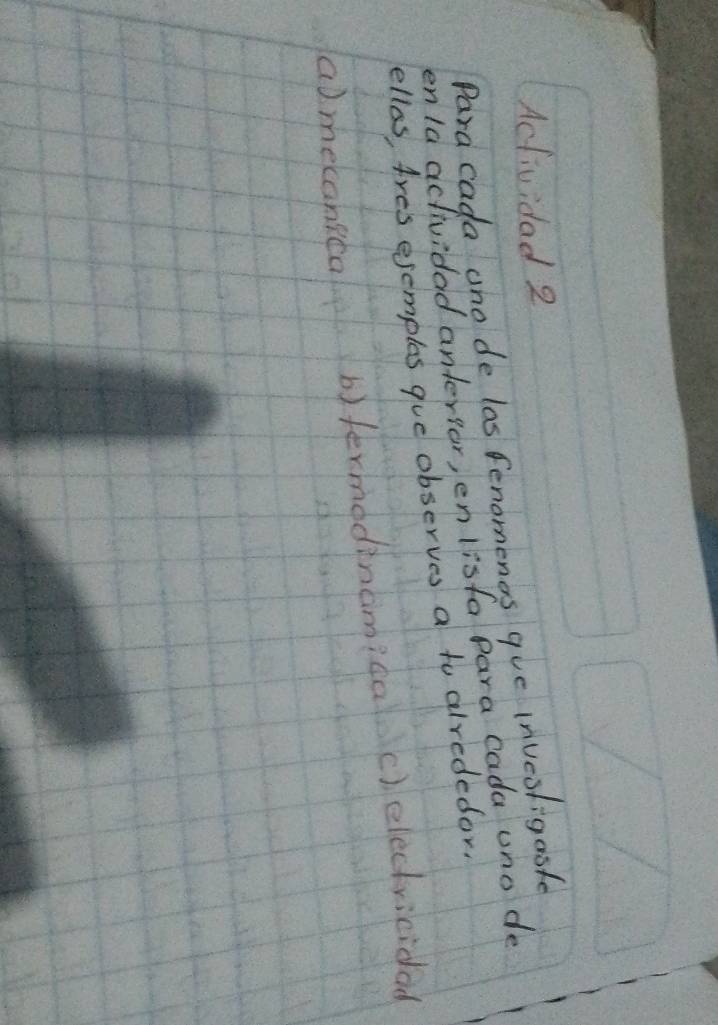 Actividad 2
Para cada uno de los fenomenos que investigaste
en la actividad anterior, en lista para cada uno de
ellos, tres ejemplos que observes a tu alrededor.
a) mecanica b) termodinamica c) electricidad